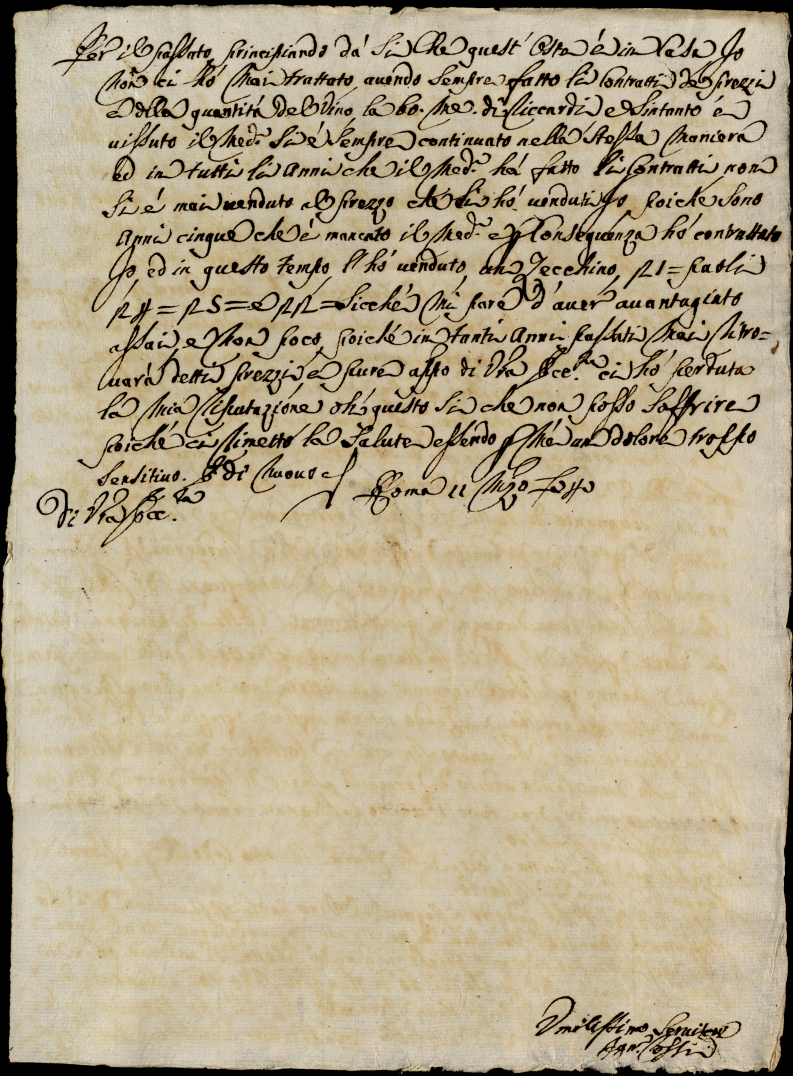 Per il passato, principiando da Si che quest'Oste è in Casa Io
non ci hò mai trattato, avendo sempre fatto li Contratti de prezzi
e della quantità del Vino, la bo: me: di Riccardi, e Sintanto è
vissuto il Med.º Si è sempre continuato nella stessa maniera
ed in tutti li Anni che il Med.º hà fatto li Contratti non
si è mai venduto al prezzo che li hò venduti Io, poiche sono
Anni cinque che è mancato il Med.º e p Conseguenza hò contrattato
Io, ed in questo tempo l'hò venduto, un Zecchino, 21 = paoli
= 25 = e 22 = Sicché mi pare d'aver avantagiato
assai e non poco, poiché in tanti Anni passati mai si tro=
varà detti prezzi, e pure apso di Vra Ecc.za ci hò perduta
la mia riputazione, oh questo si che non posso soffrire
poiché ci rimetto la Salute, essendo p me un dolore troppo
sensitivo. E di nuovo
Roma 11 Mzo
Di Vra Ecc.za
Umilissimo Servitore